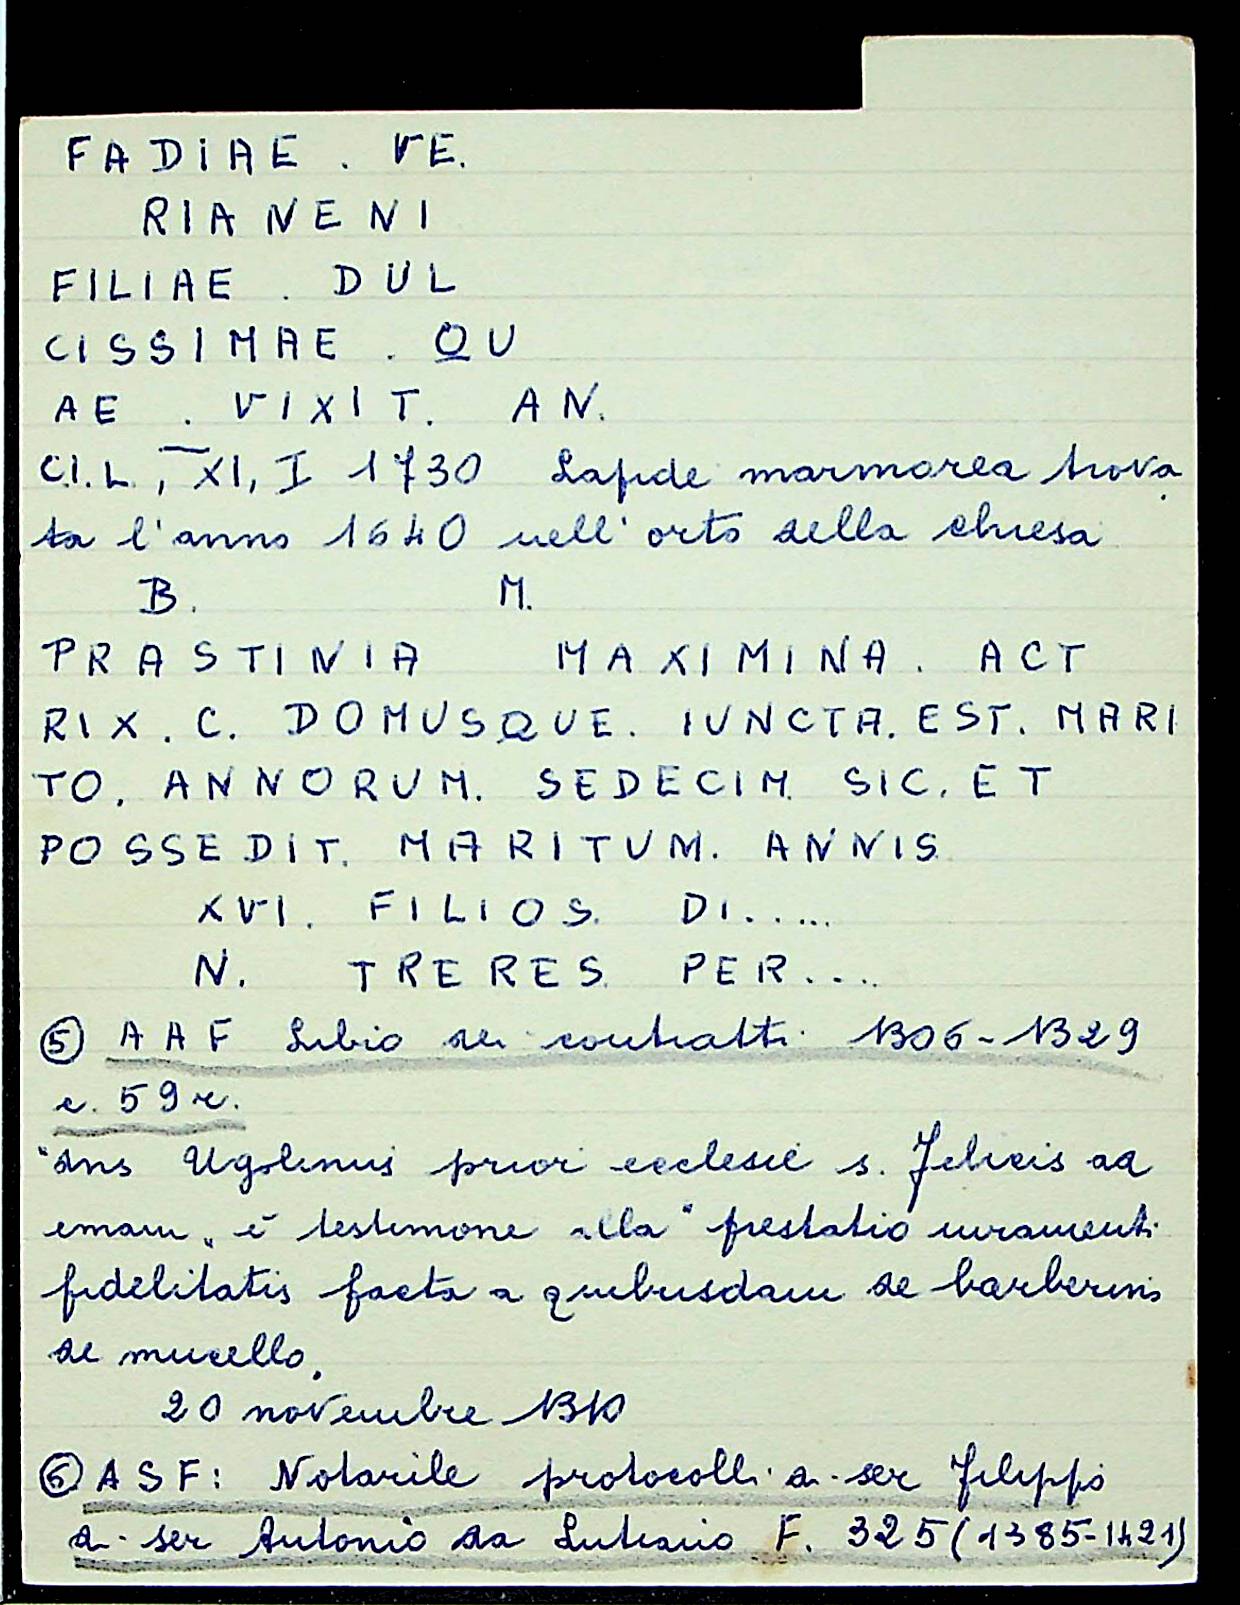 FADIAE . VE.
RIANENI
FILIAE . DUL
CISSIMAE . QU
AE . VIXIT. AN.
C.I.L., XI, I 1730 Lapide marmorea trova
ta l'anno 1640 nell'orto della chiesa
B. M.
PRASTINIA MAXIMINA. ACT
RIX. C. DOMUSQUE. IUNCTA. EST. MARI
TO. ANNORUM. SEDECIM. SIC. ET
POSSEDIT. MARITUM. ANNIS
XVI. FILIOS. DI.....
N. TRERES. PER....
⑤ AAF Libro dei contratti 1306-1329
c. 59r.
"dns Ugolinus prior ecclesie s. Felicis ad
emam" è testimone alla "prestatio iuramenti
fidelitatis facta a quibusdam de barberinis
de mucello.
20 novembre 1310
⑥ ASF: Notarile protocolli di ser Filippo
di ser Antonio da Lutiano F. 325 (1385-1421)